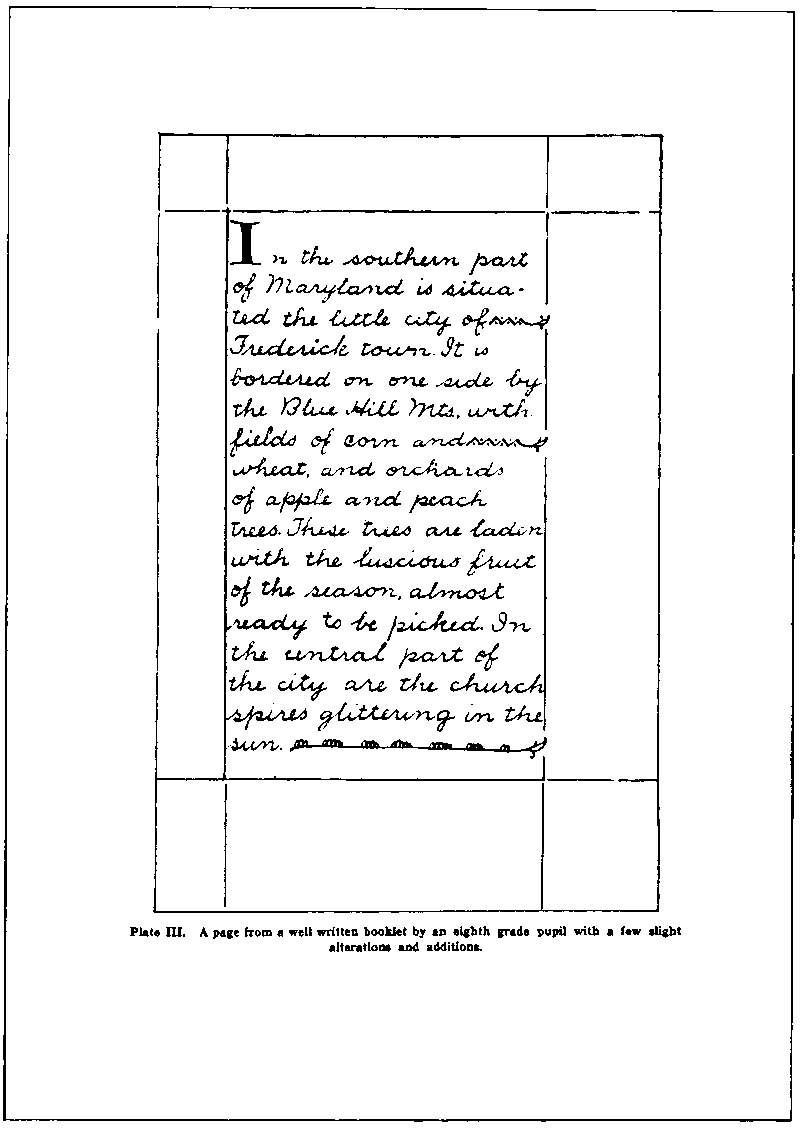 In the southern part
of Maryland is situa-
ted the little city of
Frederick town. It is
bordered on one side by
the Blue Hill Mts., with
fields of corn and
wheat, and orchards
of apple and peach
trees. These trees are laden
with the luscious fruit
of the season, almost
ready to be picked. In
the central part of
the city are the church
spires glittering in the
sun.
Plate III. A page from a well written booklet by an eighth grade pupil with a few slight
alterations and additions.